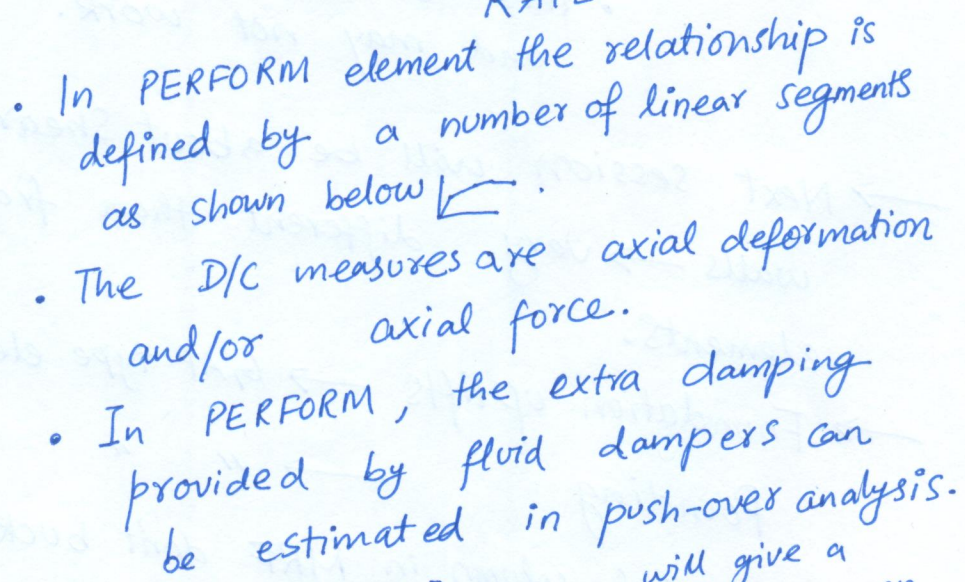 • In PERFORM element the relationship is
defined by a number of linear segments
as shown below .
• The D/C measures are axial deformation
and/or axial force.
• In PERFORM, the extra damping
provided by fluid dampers can
be estimated in push-over analysis.
will give a